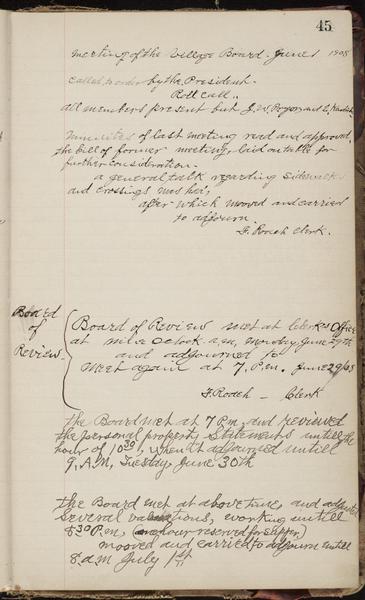 45
meeting of the Village Board. June 1 1908
called to order by the President.
Roll call..
all members present but J. W. Rogers and
Minutes of last meeting read and approved,
the bill of former meeting, laid on table for
further consideration.
a general talk regarding sidewalks
and crossings was had,
after which moved and carried
to adjourn.
F. Roach Clerk.
Board
of
Review.
Board of Review met at Clerks Office
at nine Oclock a.m, monday June 29th
and adjourned to
meet again at 7. P.m. June 29/08
F. Roach - Clerk
the Board met at 7 P.m, and reviewed
the personal property Statements untill the
hour of 10 30, when it adjourned untill
9. A.M, Tuesday June 30th
the Board met at above time, and adjusted
several valuations, working untill
8 30 P.m, (an hour reserved for supper)
mooved and carried to adjourn untill
8 a.m July 1st